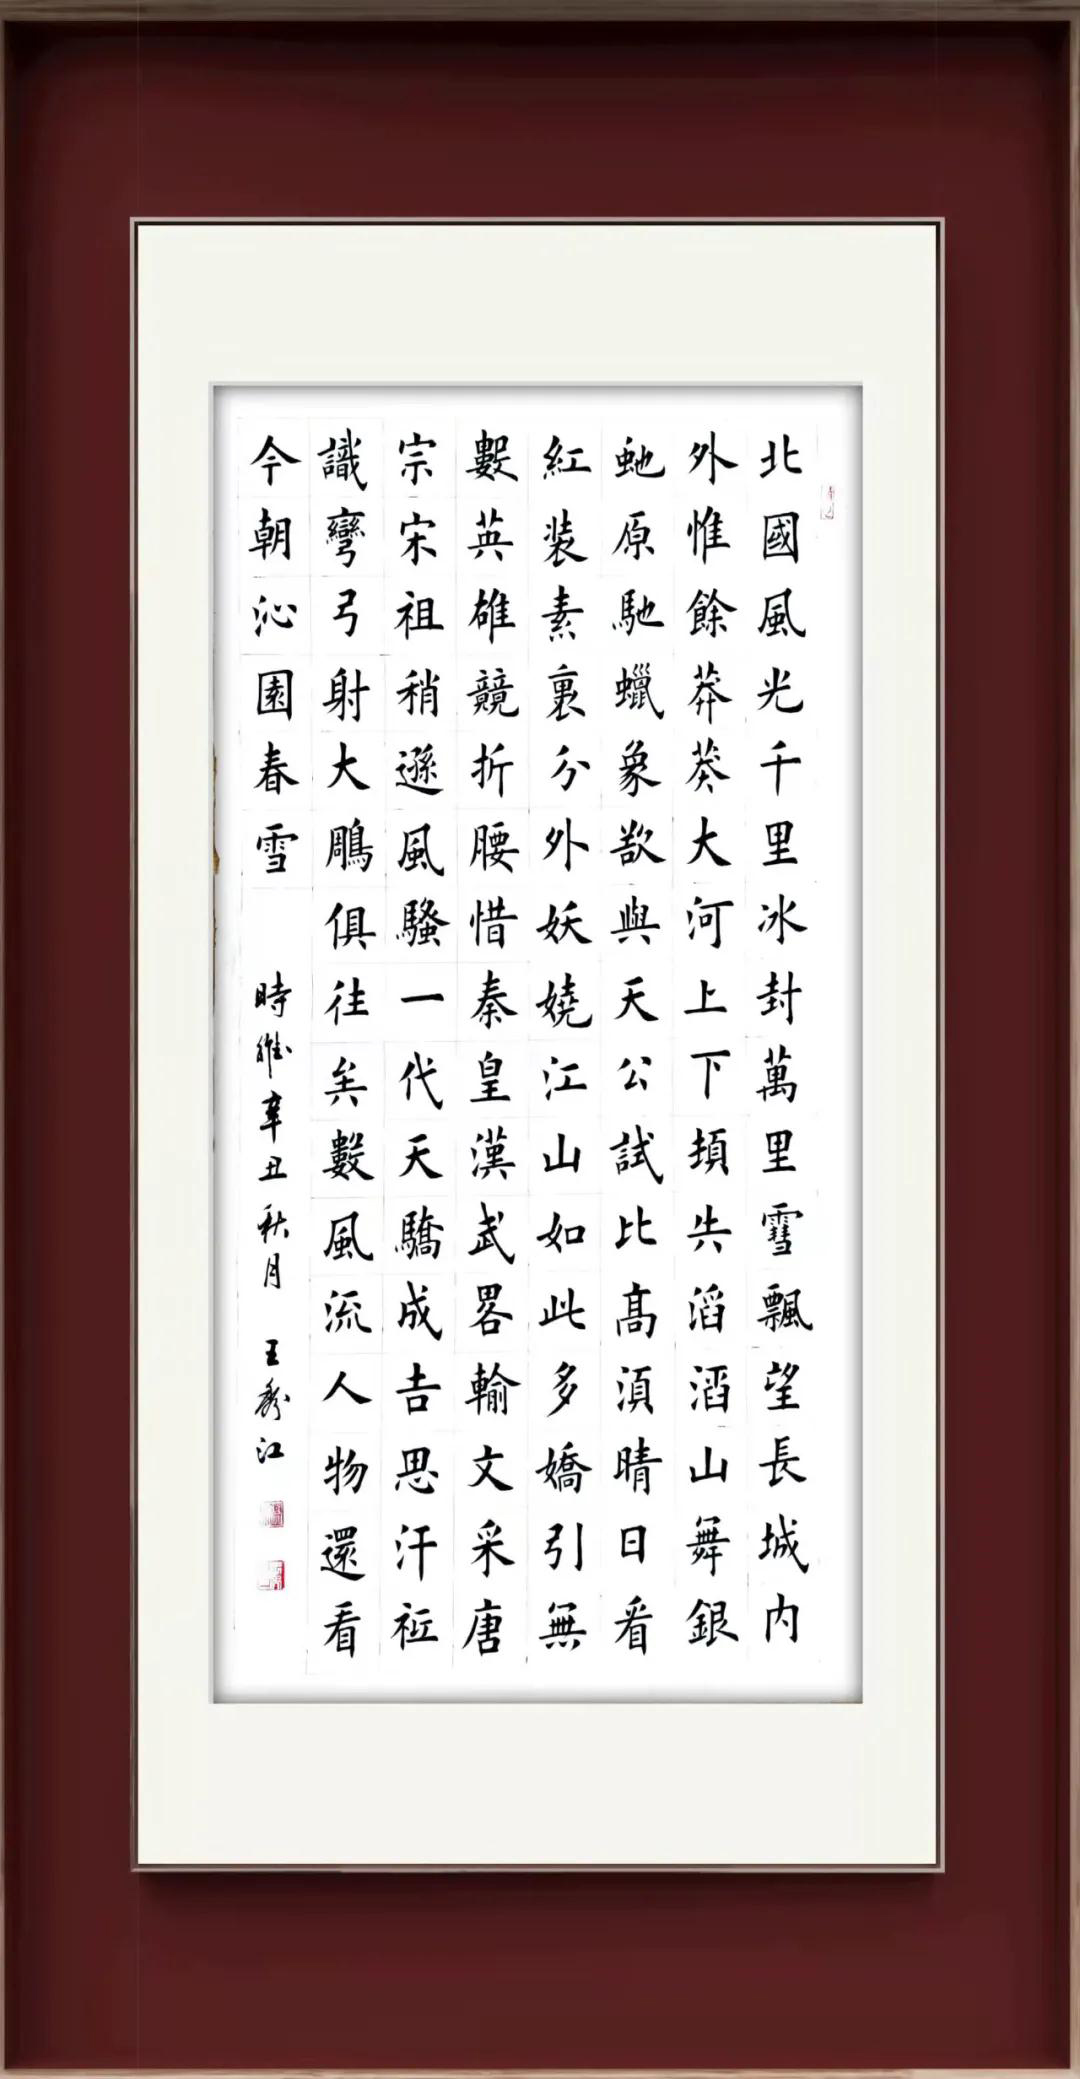 北國風光千里冰封萬里雪飄望長城内
外惟餘莽莽大河上下頓失滔滔山舞銀
虵原馳蠟象欲與天公試比高須晴日看
紅装素裹分外妖嬈江山如此多嬌引無
數英雄競折腰惜秦皇漢武畧輸文采唐
宗宋祖稍遜風騷一代天驕成吉思汗衹
識彎弓射大雕俱往矣數風流人物還看
今朝沁園春雪
時維辛丑秋月
王秀江